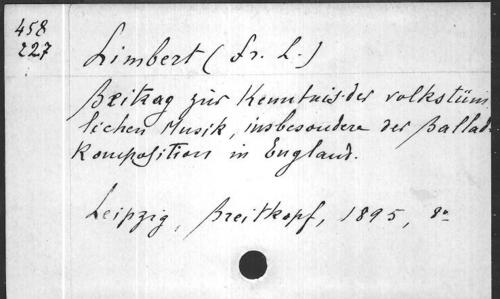 458
227
Limbert (Fr. L.)
Beitrag zur Kenntnis der volkstüm-
lichen Musik, insbesondere der Ballad-
komposition in England.
Leipzig, Breitkopf, 1895, 8º